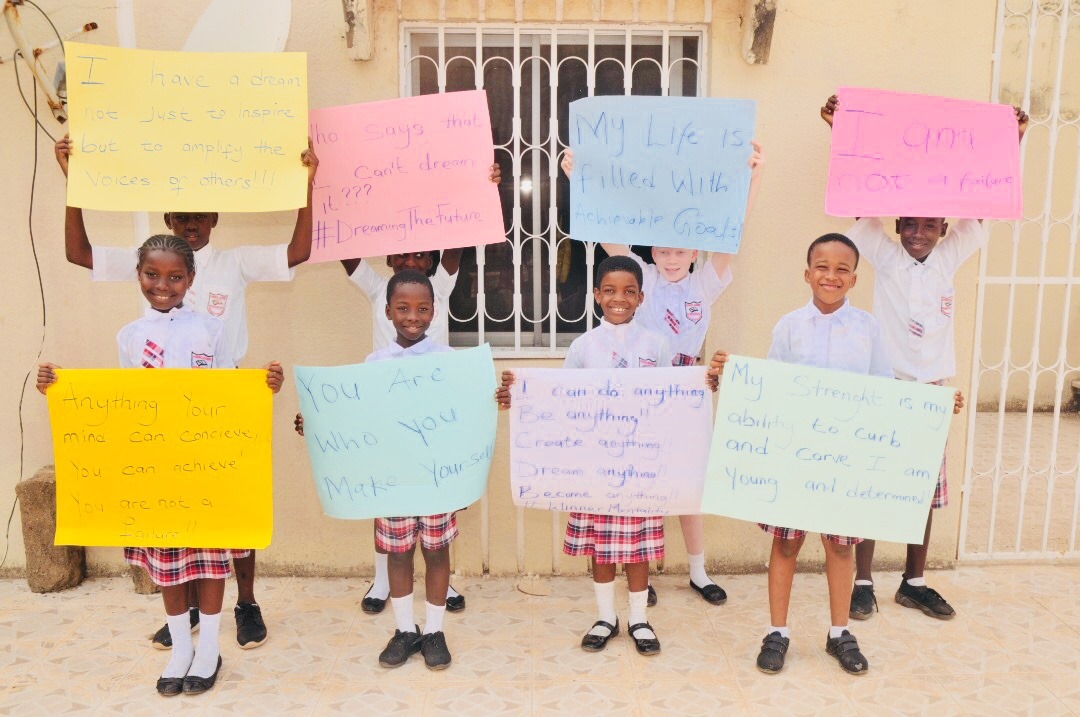 I have a dream
not just to inspire
but to amplify the
Voices of others!!!
Who Says that
I Can't dream
it???
#DreamingTheFuture
My Life is
filled With
Achievable Goals!
I am
not a failure
Anything Your
mind can concieve,
You can achieve!
You are not a
Failure!!
You Are
Who You
Make Yourself
I can do anything
Be anything!!
Create anything!!
Dream anything!!
Become anything!!
!! Winner Mentality
My Strenght is my
ability to curb
and carve I am
Young and determined!!